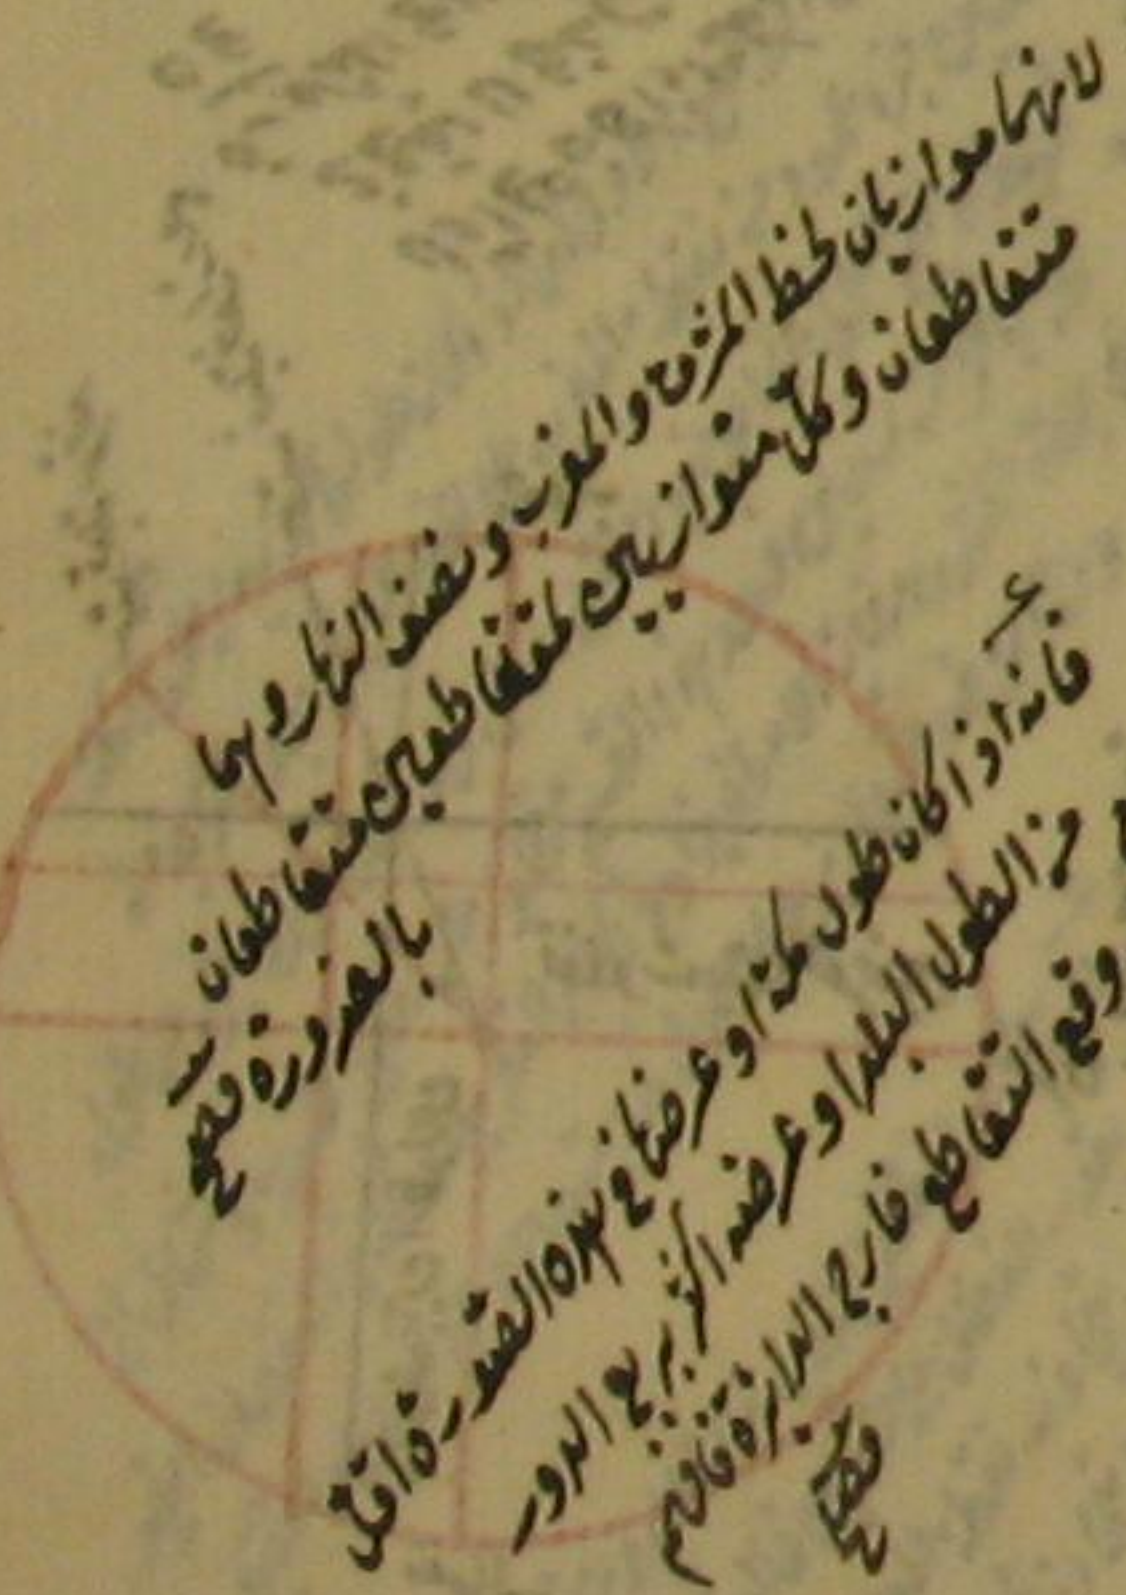 لانهما موازيان لخط المشرق والمغرب ونصف النهار وهما
متقاطعان وكل متوازيين لمتقاطعين متقاطعان
بالضرورة
فانه اذا كان طول مكة او عرضها في هذه الصورة اقل
من الطول البلد او عرضه اكثر بربع الدور
وقع التقاطع خارج الدائرة فافهم